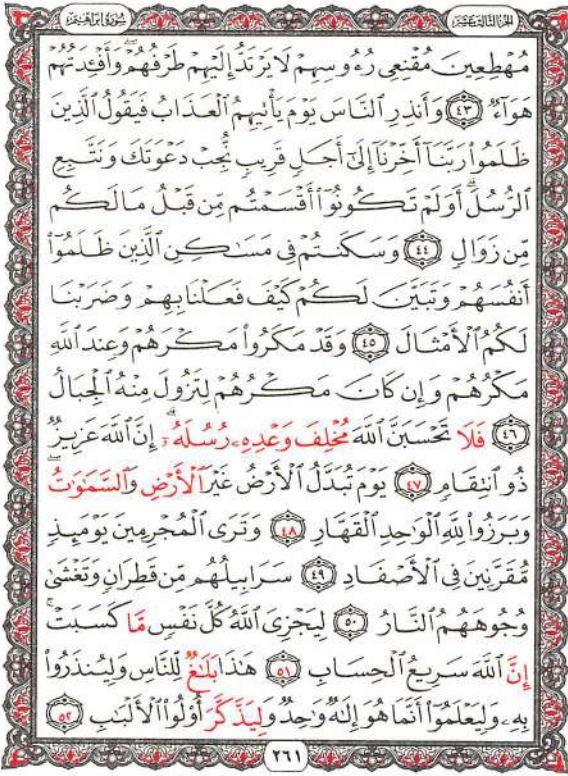 الجزء الثالث عشر
سورة إبراهيم
مُهْطِعِينَ مُقْنِعِي رُءُوسِهِمْ لَا يَرْتَدُّ إِلَيْهِمْ طَرْفُهُمْ ۖ وَأَفْـِٔدَتُهُمْ
هَوَآءٌ ٤٣ وَأَنذِرِ ٱلنَّاسَ يَوْمَ يَأْتِيهِمُ ٱلْعَذَابُ فَيَقُولُ ٱلَّذِينَ
ظَلَمُوا۟ رَبَّنَآ أَخِّرْنَآ إِلَىٰٓ أَجَلٍ قَرِيبٍ نُّجِبْ دَعْوَتَكَ وَنَتَّبِعِ
ٱلرُّسُلَ ۗ أَوَلَمْ تَكُونُوٓا۟ أَقْسَمْتُم مِّن قَبْلُ مَا لَكُم
مِّن زَوَالٍ ٤٤ وَسَكَنتُمْ فِي مَسَـٰكِنِ ٱلَّذِينَ ظَلَمُوٓا۟
أَنفُسَهُمْ وَتَبَيَّنَ لَكُمْ كَيْفَ فَعَلْنَا بِهِمْ وَضَرَبْنَا
لَكُمُ ٱلْأَمْثَالَ ٤٥ وَقَدْ مَكَرُوا۟ مَكْرَهُمْ وَعِندَ ٱللَّهِ
مَكْرُهُمْ وَإِن كَانَ مَكْرُهُمْ لِتَزُولَ مِنْهُ ٱلْجِبَالُ
٤٦ فَلَا تَحْسَبَنَّ ٱللَّهَ مُخْلِفَ وَعْدِهِۦ رُسُلَهُۥٓ ۗ إِنَّ ٱللَّهَ عَزِيزٌ
ذُو ٱنتِقَامٍ ٤٧ يَوْمَ تُبَدَّلُ ٱلْأَرْضُ غَيْرَ ٱلْأَرْضِ وَٱلسَّمَـٰوَٰتُ ۖ
وَبَرَزُوا۟ لِلَّهِ ٱلْوَٰحِدِ ٱلْقَهَّارِ ٤٨ وَتَرَى ٱلْمُجْرِمِينَ يَوْمَئِذٍ
مُّقَرَّنِينَ فِي ٱلْأَصْفَادِ ٤٩ سَرَابِيلُهُم مِّن قَطِرَانٍ وَتَغْشَىٰ
وُجُوهَهُمُ ٱلنَّارُ ٥٠ لِيَجْزِيَ ٱللَّهُ كُلَّ نَفْسٍ مَّا كَسَبَتْ ۚ
إِنَّ ٱللَّهَ سَرِيعُ ٱلْحِسَابِ ٥١ هَـٰذَا بَلَـٰغٌ لِّلنَّاسِ وَلِيُنذَرُوا۟
بِهِۦ وَلِيَعْلَمُوٓا۟ أَنَّمَا هُوَ إِلَـٰهٌ وَٰحِدٌ وَلِيَذَّكَّرَ أُو۟لُوا۟ ٱلْأَلْبَـٰبِ ٥٢
٢٦١